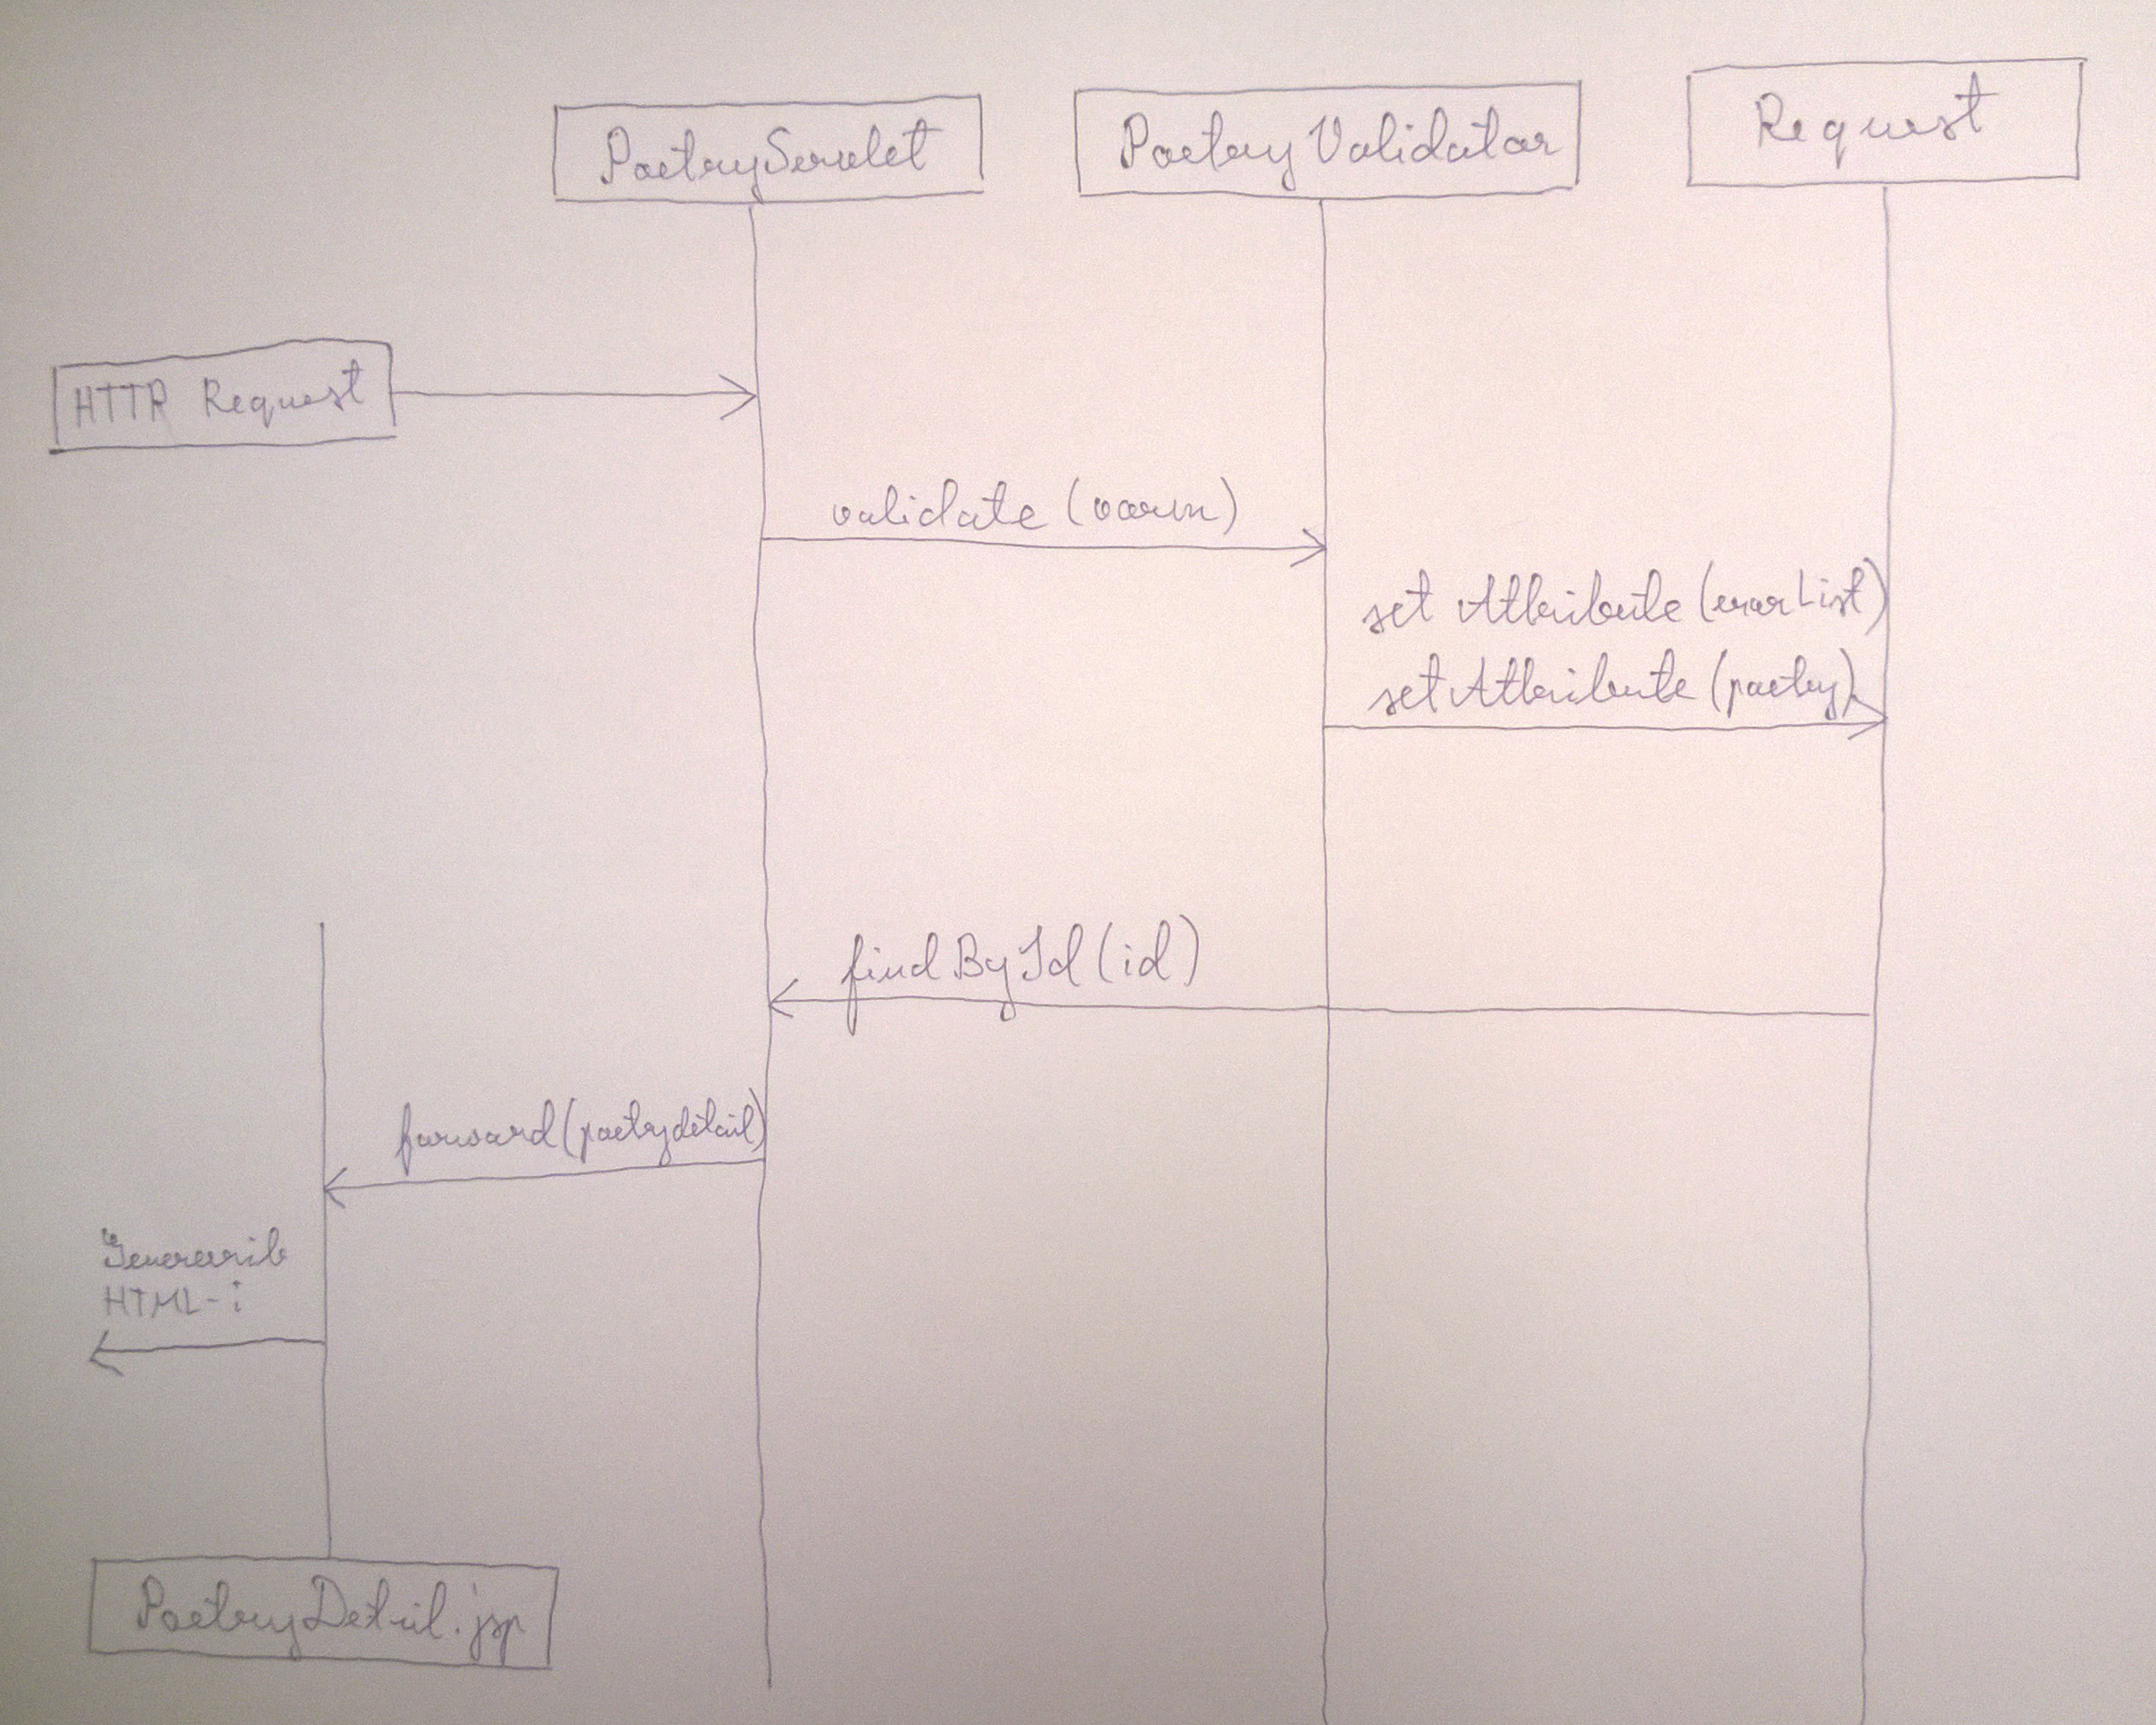 PoetryServlet
PoetryValidator
Request
HTTP Request
validate (
set Attribute (errorList)
setAttribute (poetry)
findById (id)
forward (poetrydetail)
Genereerib
HTML-i
PoetryDetail.jsp